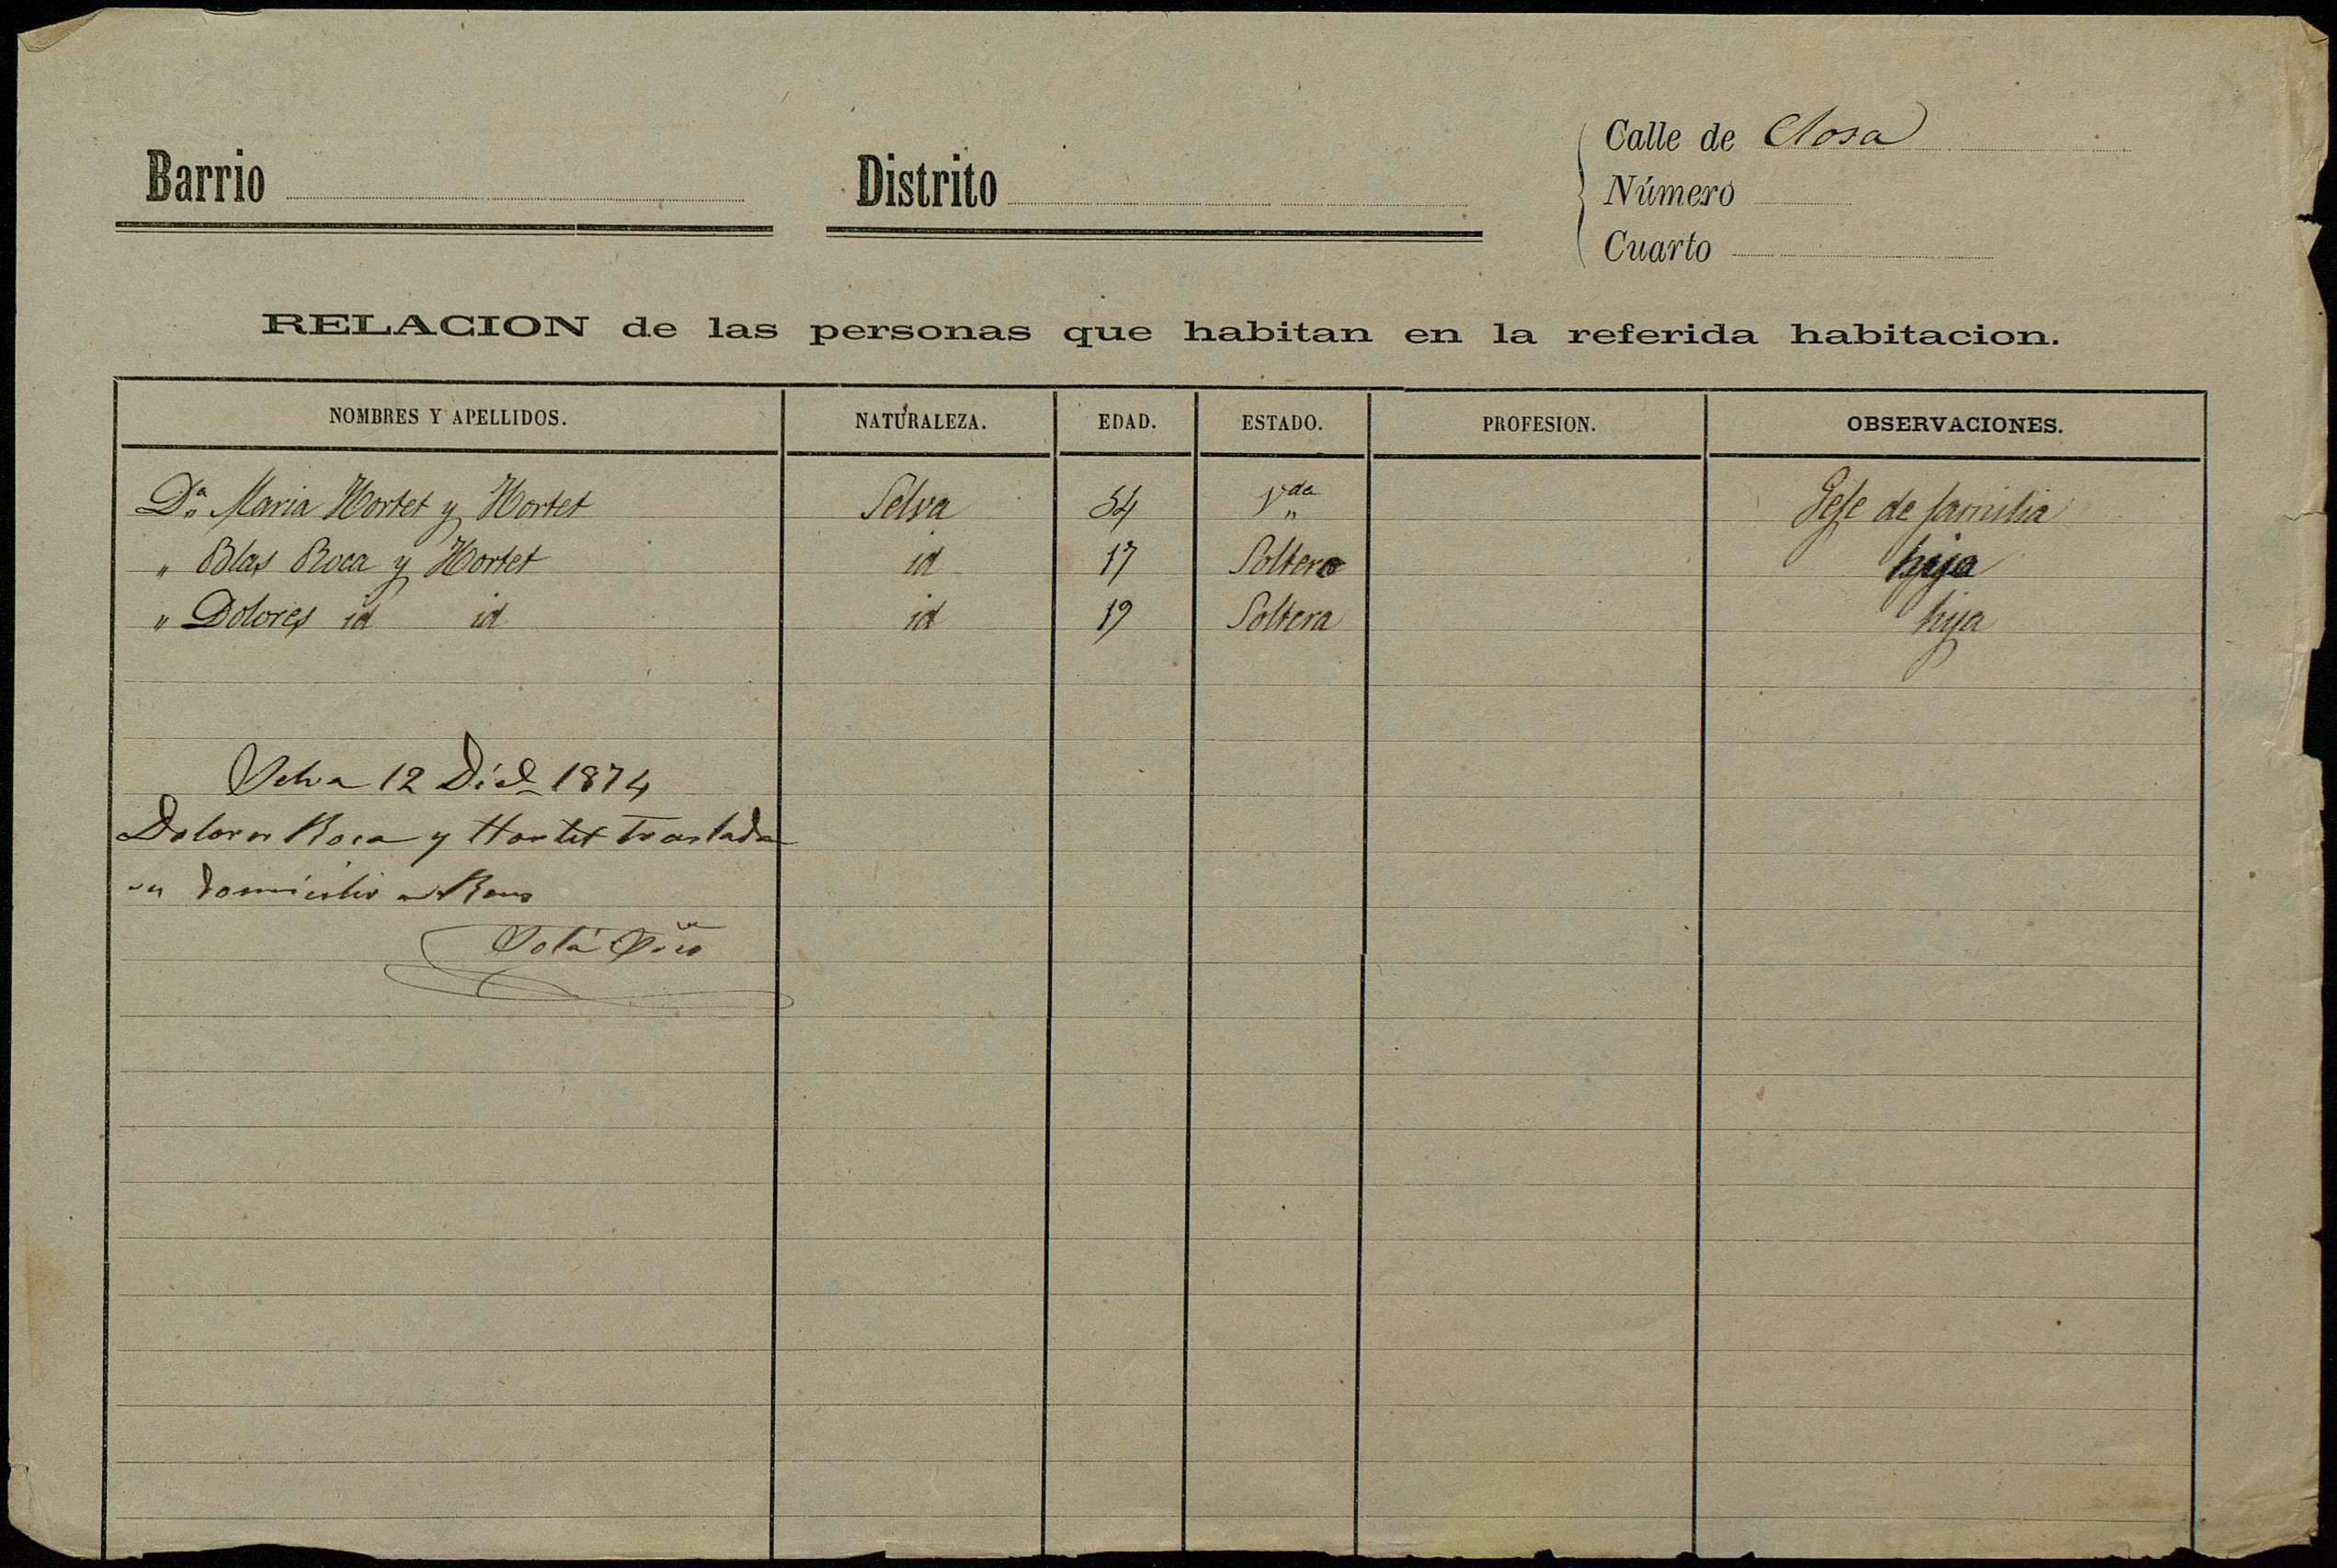 Barrio
Distrito
Calle de Closa
Número
Cuarto
RELACION de las personas que habitan en la referida habitacion.
NOMBRES Y APELLIDOS. NATURALEZA. EDAD. ESTADO. PROFESION. OBSERVACIONES.
Dª Maria Hortet y Hortet Selva 54 Vda Gefe de familia
" Blas Roca y Hortet id 17 Soltero
" Dolores id id id 19 Soltera hija
Selva 12 Dice 1874
Dolores Roca y Hortet traslada
su domicilio a Reus
Solá